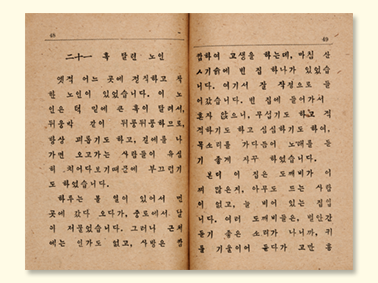 48
二十一 혹 달린 노인
옛적 어느 곳에 정직하고 착
한 노인이 있었습니다. 이 노
인은 턱 밑에 큰 혹이 달려서,
뒤웅박 같이 뒤룽뒤룽하므로,
항상 괴롭기도 하고, 길에를 나
가면 오고가는 사람들이 유심
히 치어다보기때문에 부끄럽기
도 하였습니다.
하루는 볼 일이 있어서 먼
곳에 갔다 오다가, 중도에서 날
이 저물었습니다. 그러나 근처
에는 인가도 없고, 사방은 캄
49
캄하여 고생을 하는데, 마침 산
기슭에 빈 집 하나가 있었습
니다. 여기서 잘 작정으로 들
어갔습니다. 빈 집에 들어가서
혼자 앉으니, 무섭기도 하고 적
적하기도 하고 심심하기도 하여,
목소리를 가다듬어 노래를 듣
기 좋게 자꾸 하였습니다.
본디 이 집은 도깨비가 이
써 많은지, 아무도 드는 사람
이 없고, 늘 비어 있는 집입
니다. 여러 도깨비들은, 별안간
듣기 좋은 소리가 나니까, 귀
를 기울이어 듣다가 고만 흥